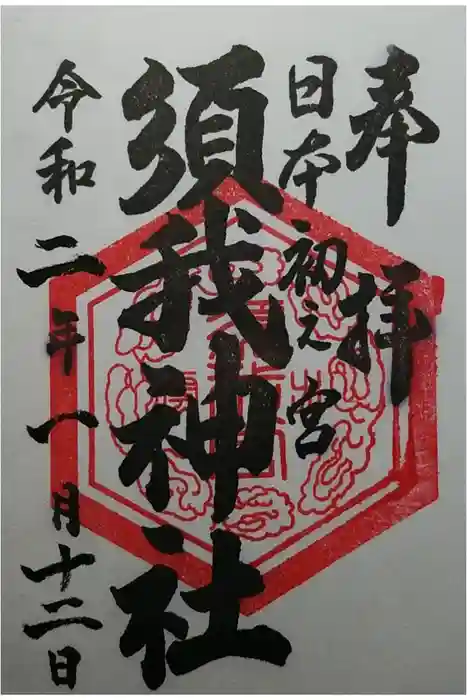 奉拝
日本初之宮
須我神社
令和二年一月十二日